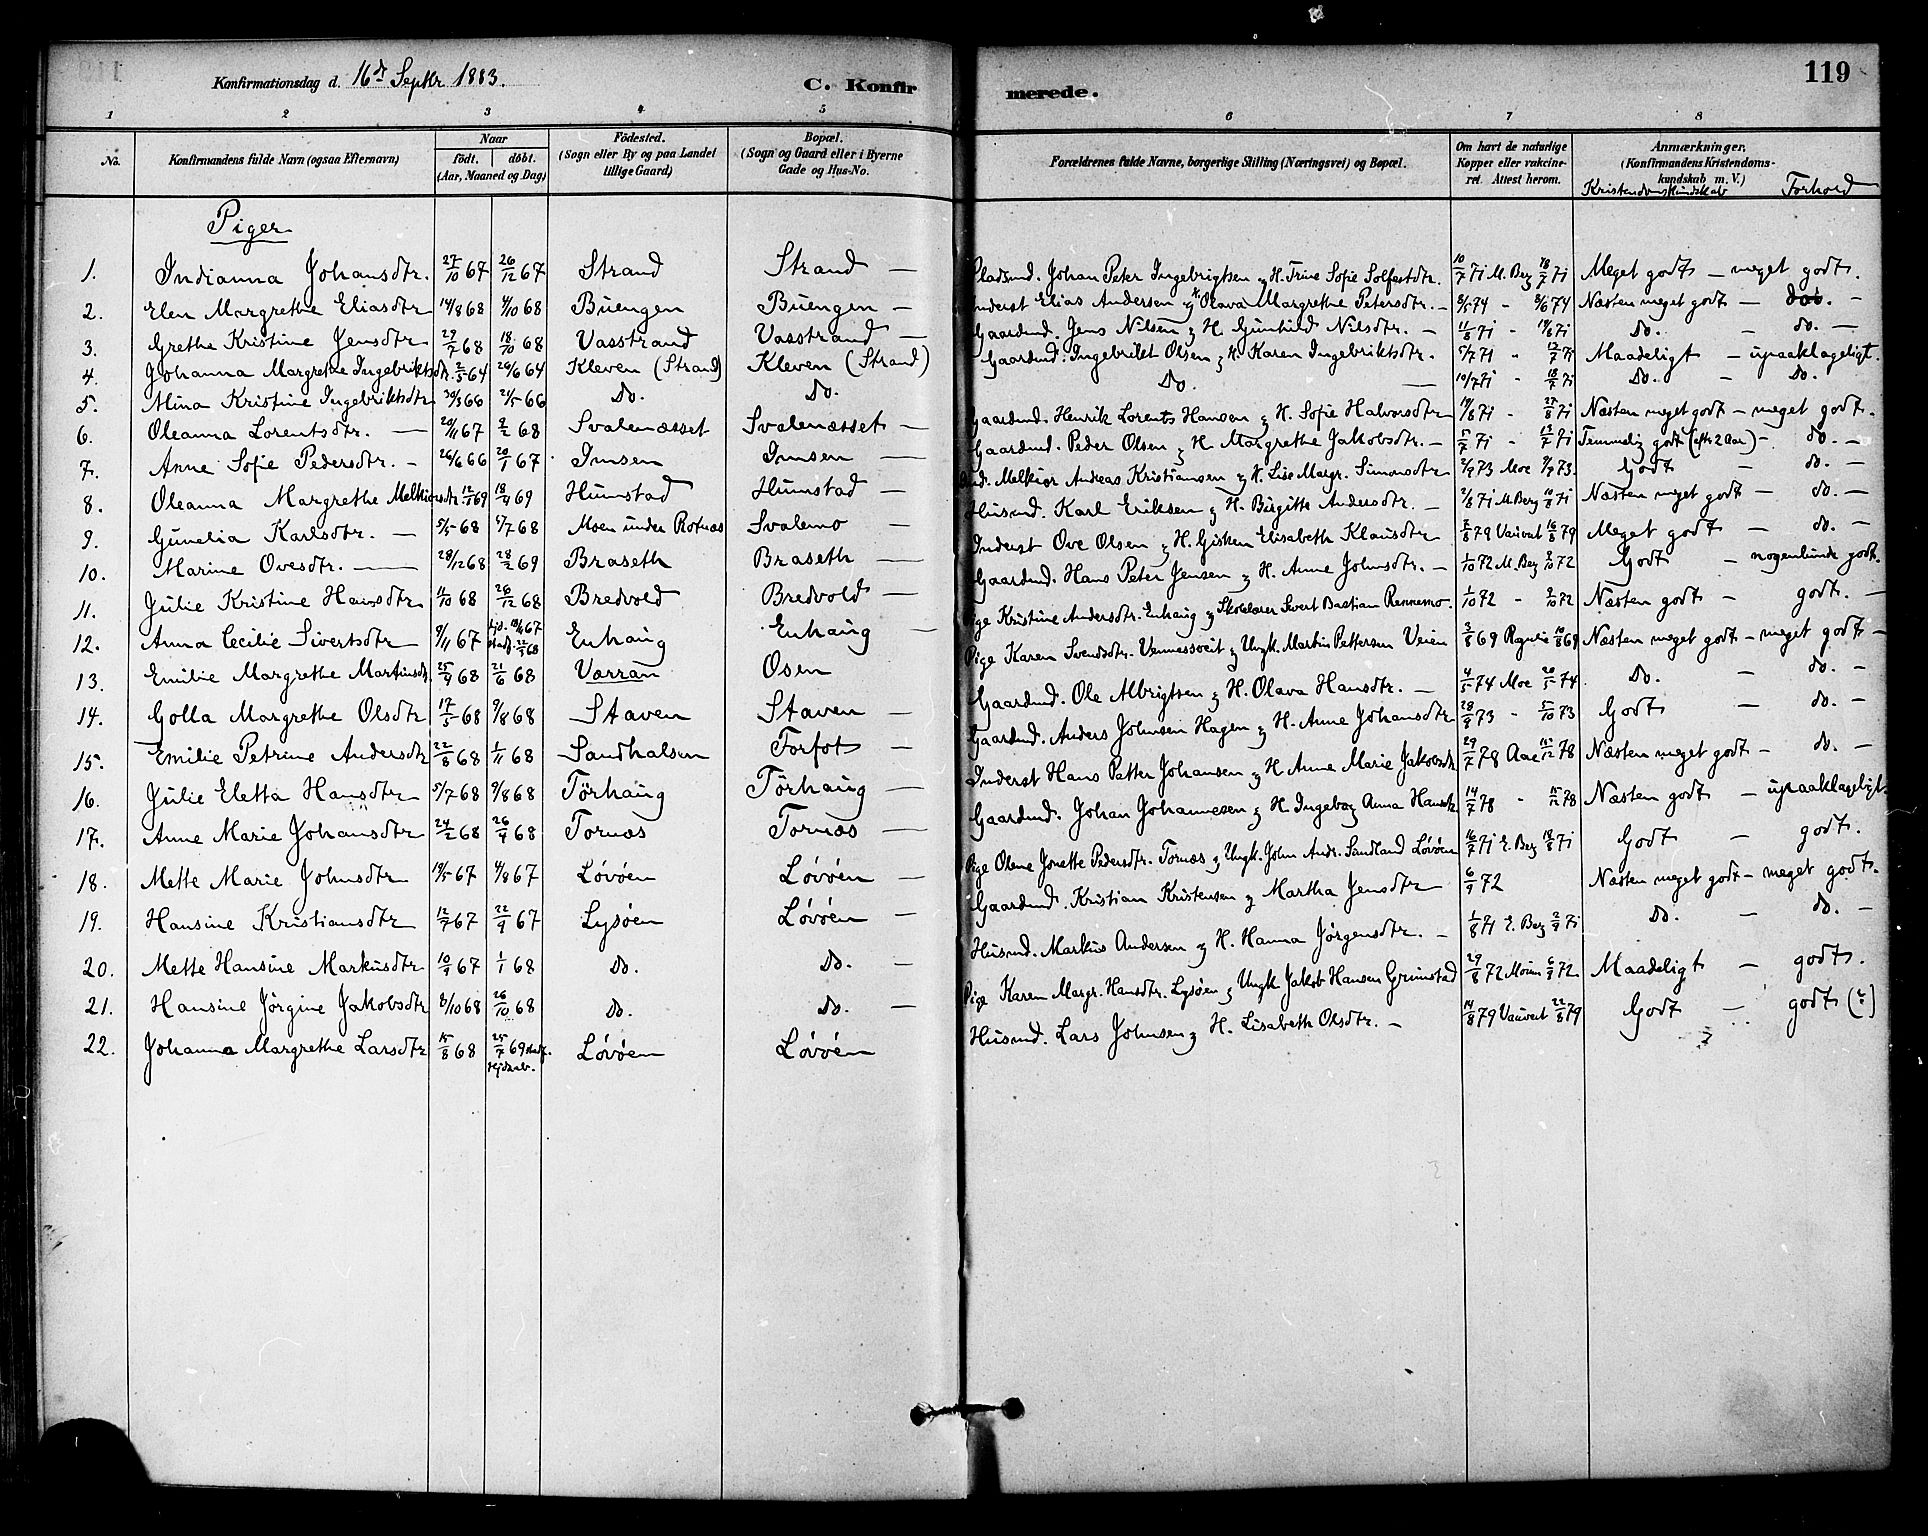 119
Konfirmationsdag d. 16de Septbr 1883. C. Konfirmerede.
1 2 3 4 5 6 7 8
No. Konfirmandens fulde Navn (ogsaa Efternavn) Naar født. døbt. (Aar, Maaned og Dag) Födested. (Sogn eller By og paa Landet tillige Gaard) Bopæl. (Sogn og Gaard eller i Byerne Gade og Hus-No. Forældrenes fulde Navne, borgerlige Stilling (Næringsvei) og Bopæl. Om havt de naturlige Kopper eller vakcineret. Attest herom. Anmærkninger, (Konfirmandens Kristendomskundskab m. V.) Kristendomskundskab Forhold
Piger
1. Indianna Johansdtr. 27/10 67 26/12 67 Strand Strand — Pladsmd. Johan Peter Ingebrigtsen & H. Trine Sofie Solfestdtr. 10/7 71 M. Berg 18/7 71 Meget godt — meget godt.
2. Elen Margrethe Eliasdtr 14/8 68 4/10 68 Buengen Buengen — Inderst Elias Andersen & H. Olava Margrethe Petersdtr. — 3/5 74 - 3/6 74 Næsten meget godt — do. —
3. Grethe Kristine Jensdtr 29/7 68 18/10 68 Vasstrand Vasstrand — Gaardmd. Jens Nilsen & H. Gunhild Nilsdtr. — 11/8 71 - 19/8 71 do. — do. —
4. Johanna Margrethe Ingebriktsdtr. 2/5 64 20/6 64 Kleven (Strand) Kleven (Strand) Gaardmd. Ingebrikt Olsen & H. Karen Ingebriktsdtr. 5/7 71 - 12/7 71 Maadeligt — upaaklageligt.
5. Mina Kristine Ingebriktsdtr 30/3 66 21/5 66 Do. Do. Do. — 10/7 71 - 18/7 71 Do. — Do.
6. Oleanna Lorentsdtr. — 20/11 67 9/2 68 Svalenæsset Svalenæsset — Gaardmd. Henrik Lorents Hansen & H. Sofie Halvorsdtr 19/8 71 - 27/8 71 Næsten meget godt — meget godt.
7. Anne Sofie Pedersdtr. — 26/6 66 20/1 67 Imsen Imsen — Gaardmd. Peder Olsen & H. Margrethe Jakobsdtr. — 5/7 71 - 13/7 71 Temmelig godt (efter 2 Aar) — do. —
8. Oleanna Margrethe Melkiorsdtr. 12/1 69 18/4 69 Humstad Humstad — Melkior Andreas Kristiansen & H. Lise Margr. Simonsdtr 2/9 73 Moe 9/9 73. Godt — do. —
9. Gunelia Karlsdtr. — 5/5 68 5/7 68 Moen under Rotnæs Svalemo — Husmd. Karl Eriksen & H. Birgitte Andersdtr. — 2/8 71 M. Berg 10/8 71 Næsten meget godt — do. —
10. Marine Ovesdtr. — 28/12 68 28/2 69 Braseth Braseth — Inderst Ove Olsen & H. Gisken Elisabeth Klausdtr 8/8 79 Vauvert 16/8 79 Meget godt — do. —
11. Julie Kristine Hansdtr 11/10 68 26/12 68 Bredvold Bredvold — Gaardmd. Hans Peter Jensen & H. Anne Johnsdtr. — 1/10 72 M. Berg 9/10 72 Godt — nogenlunde godt.
12. Anna Cecilie Sivertsdtr 9/11 67 hjd. 19/11 67 stadf. 22/3 68 Enhaug Enhaug — Pige Kristine Andersdtr. Enhaug & Skolelærer Sivert Bastian Rennemo. 1/10 72 - 9/10 72 Næsten godt — godt. —
13. Emilie Margrethe Martinsdtr. 25/4 68 21/6 68 Varran Osen Pige Karen Svendsdtr. Vennesseit & Ungk. Martin Pettersen Veien 3/8 69 10/8 69 Næsten meget godt — meget godt —
14. Golla Margrethe Olsdtr 17/5 68 9/8 68 Staven Staven — Gaardmd. Ole Albrigtsen & H. Olava Hansdtr. — 4/5 74 Moe 20/5 74 Do. — do. —
15. Emilie Petrine Andersdtr 22/8 68 1/11 68 Sandhalsen Forfot — Gaardmd. Anders Johnsen Hagen & H. Anne Johansdtr 28/9 73 - 5/10 73 Godt — do. —
16. Julie Eletta Hansdtr 5/7 68 9/8 68 Törhaug Törhaug — Inderst Hans Petter Johansen & H. Anne Marie Jakobsdtr 29/7 78 Aae 15/12 78 Næsten meget godt — do. —
17. Anne Marie Johansdtr 24/2 68 26/4 68 Tornæs Tornæs — Gaardmd. Johan Johannesen & H. Ingeborg Anna Hansdtr 14/7 78 - 15/12 78 Næsten godt — upaaklageligt.
18. Mette Marie Johnsdtr 19/5 67 4/8 67 Løvøen Løvøen — Pige Olene Jonette Pedersdtr. Tornæs & Ungk. John Andr. Sandland Løvøen 16/7 71 E. Berg 18/8 71 Godt — godt.
19. Hansine Kristiansdtr 12/7 67 22/9 67 Lysøen Løvøen — Gaardmd. Kristian Kristensen & Martha Jensdtr 6/9 72 Næsten meget godt — meget godt.
20. Mette Hansine Markusdtr 10/9 67 1/1 68 Do. Do. — Husmd. Markus Andersen & H. Hanna Jørgensdtr. — 1/8 71 E. Berg 2/9 71 Do. — Do. —
21. Hansine Jørgine Jakobsdtr 8/10 68 26/10 68 Do. Do. — Pige Karen Margr. Hansdtr. Lysøen & Ungk Jakob Hansen Grimstad 29/8 72 6/9 72 Maadeligt — godt.
22. Johanna Margrethe Larsdtr 15/8 68 25/7 69 stadf. Hjdaab. Løvøen Løvøen Husmd. Lars Johnsen & H. Lisabeth Olsdtr. — 14/8 79 Vauvert 22/8 79 Godt — godt